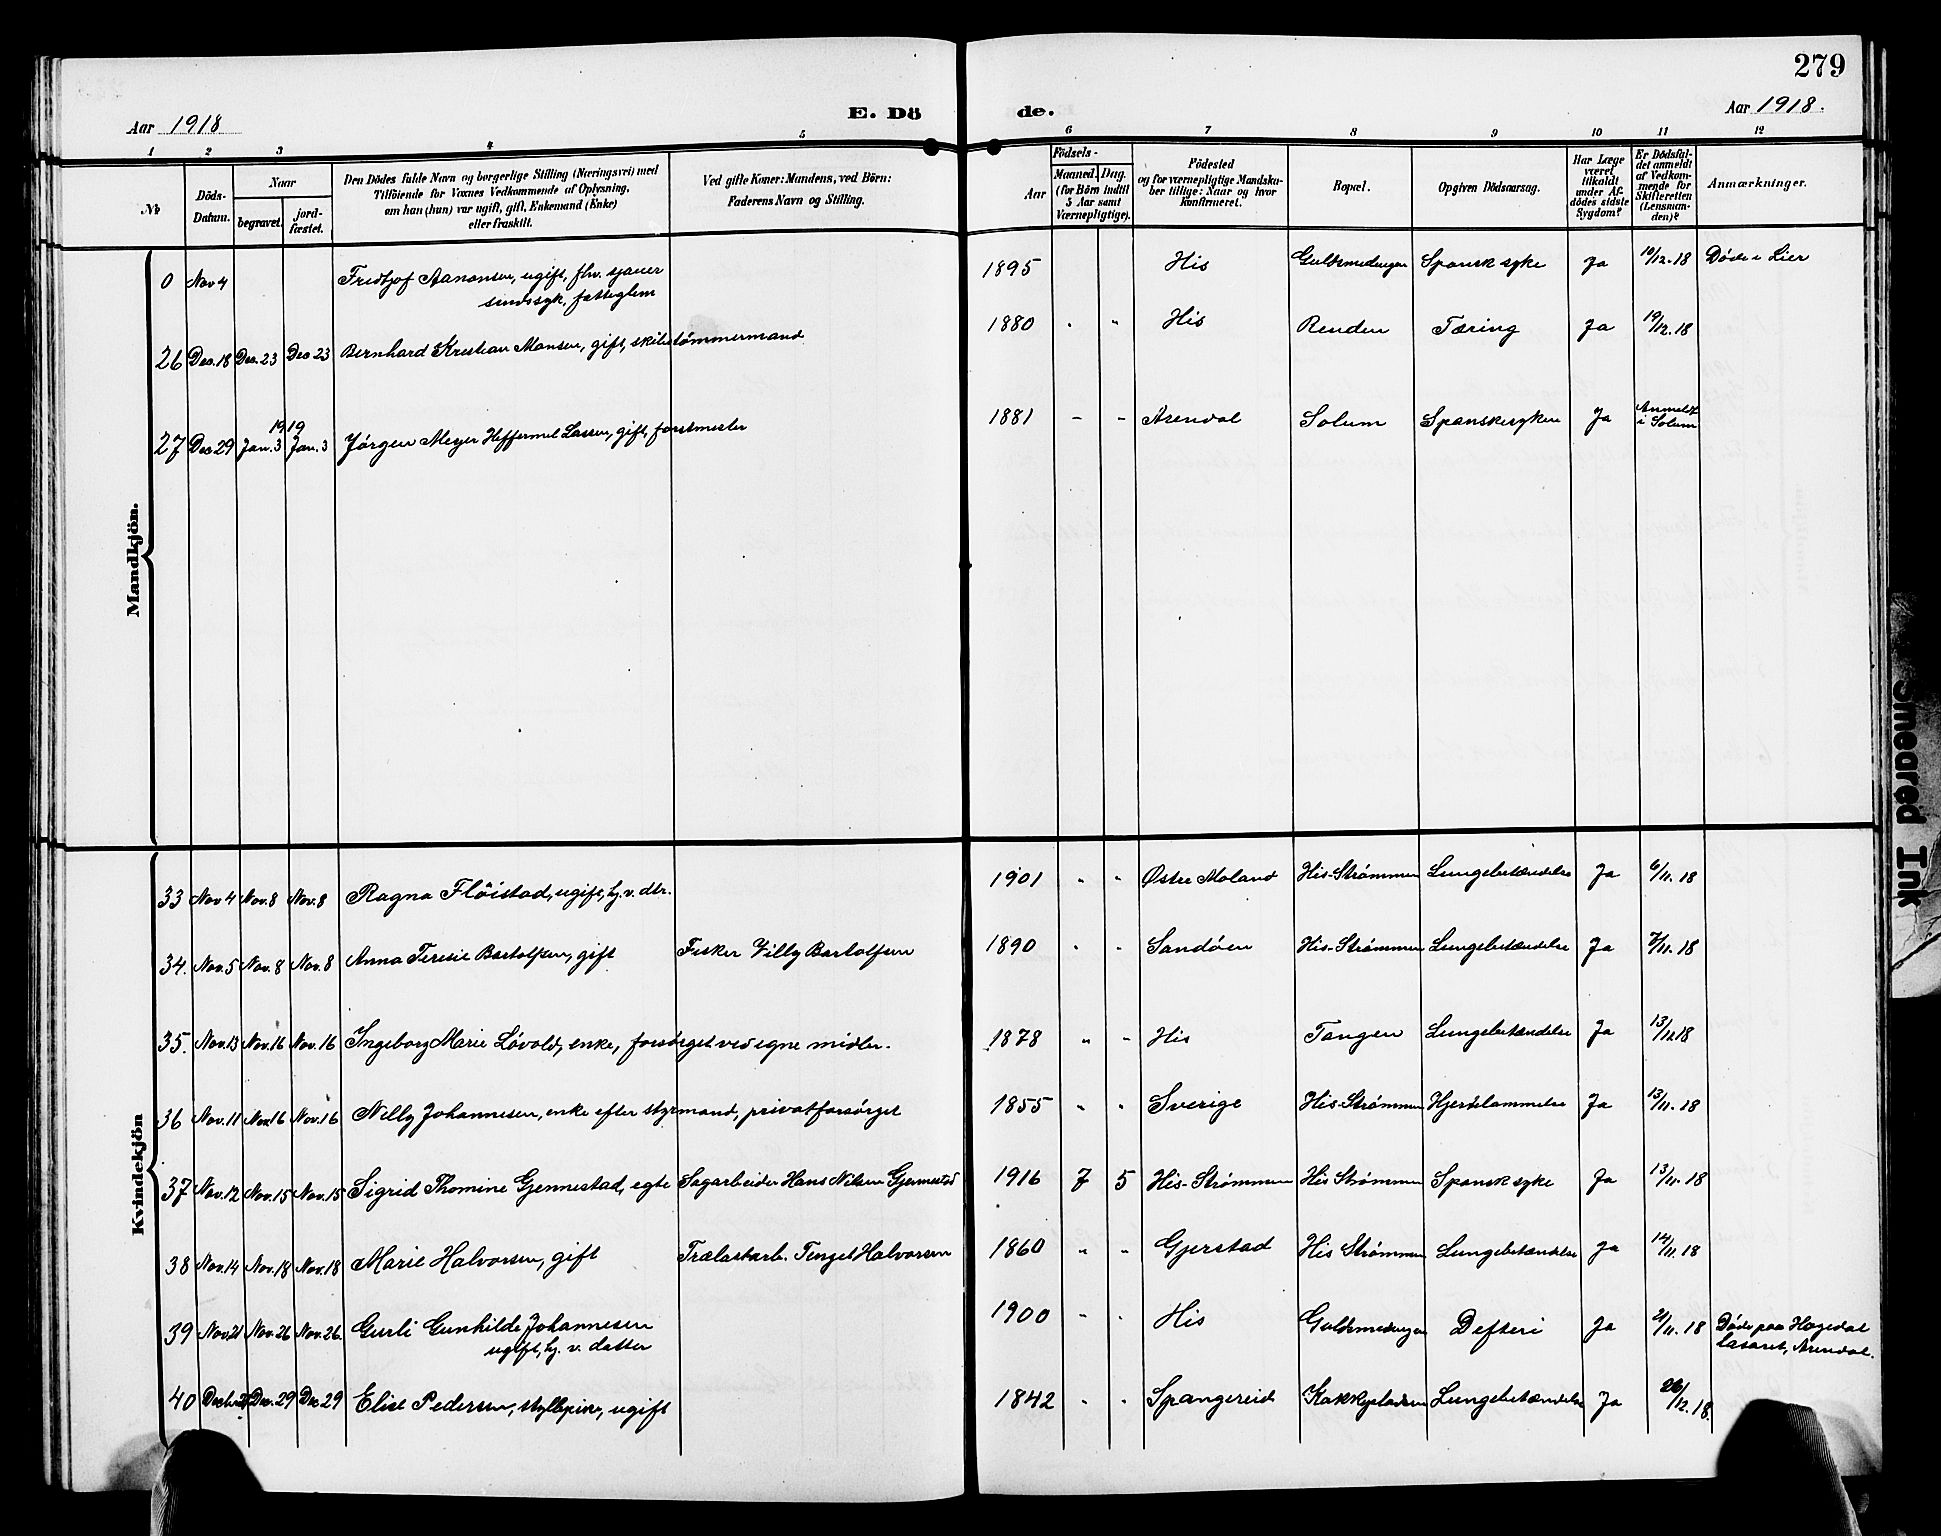 279
Aar 1918
E. Dö
de.
Aar 1918.
1 2 3 4 5 6 7 8 9 10 11 12
No
Döds-
Datum.
Naar
begravet.
jord-
fæstet.
Den Dödes fulde Navn og borgerlige Stilling (Næringsvei) med
Tilföiende for Voxnes Vedkommende af Oplysning,
om han (hun) var ugift, gift, Enkemand (Enke)
eller fraskilt.
Ved gifte Koner: Mandens, ved Börn:
Faderens Navn og Stilling.
Födsels-
Aar
Maaned. Dag.
(for Börn indtil
5 Aar samt
Værnepligtige).
Födested
og for værnepligtige Mandska-
ber tillige: Naar og hvor
konfirmeret.
Bopæl.
Opgiven Dödsaarsag.
Har Læge
været
tilkaldt
under Af-
dödes sidste
Sygdom?
Er Dödsfal-
det anmeldt
af Vedkom-
mende for
Skifteretten
(Lensman-
den)?
Anmærkninger.
Mandkjön.
0 Nov 4 Fredtjof Aanonsen, ugift, fhv. sjauer 1895 His Guldsmedengen Spansk syke Ja 10/12.18 Døde i Lier
sindssyk, fattiglem
26 Dec. 18 Dec. 23 Dec 23 Bernhard Kristian Monsen, gift, skibstømmermand 1880 " " His Renden Tæring Ja 19/12.18
1919
27 Dec 29 Jan. 3 Jan. 3 Jørgen Meyer Heffermel Lassen, gift, forstmester 1881 - - Arendal Solum Spanskesyken Ja Anmeldt
i Solum
Kvindekjön
33 Nov 4 Nov. 8 Nov. 8 Ragna Flöistad, ugift, hj. v. dtr. 1901 " " Østre Moland His-Strømmen Lungebetændelse Ja 6/11.18
34. Nov. 5 Nov. 8 Nov. 8 Anna Teresie Bartolfsen, gift Fisker Villy Bartolfsen 1890 " " Sandøen His-Strømmen Lungebetændelse Ja 7/11.18
35. Nov. 13 Nov. 16 Nov. 16 Ingeborg Marie Løvold, enke, forsørget ved egne midler. 1878 " " His Tangen Lungebetændelse Ja 13/11 18
36 Nov. 11 Nov. 16 Nov. 16 Nelly Johannesen, enke efter styrmand, privat forsørget 1855 " " Sverige His-Strømmen Hjertelammelse Ja 13/11.18
37 Nov. 12 Nov. 15 Nov. 15 Sigrid Thomine Gjennestad, egte Sagarbeider Hans Nilsen Gjennestad 1916 7 5 His-Strømmen His Strømmen Spansk syke Ja 13/11.18
38 Nov. 14 Nov. 18 Nov. 18 Marie Halvorsen, gift Trælastarb. Tengel Halvorsen 1860 " " Gjerstad His Strømmen Lungebetændelse Ja 14/11.18
39 Nov. 21 Nov. 26 Nov. 26. Gurli Gunhilde Johannesen 1900 " " His Guldsmedengen Defteri Ja 21/11.18 Døde paa Høgedal
ugift, hj. v. datter lasaret, Arendal.
40 Dec. 29 Dec 29 Elise Pedersen, syllepike, ugift 1842 " " Spangereid Kokkepladsen Lungebetændelse Ja 28/12.18.
Smeared Ink